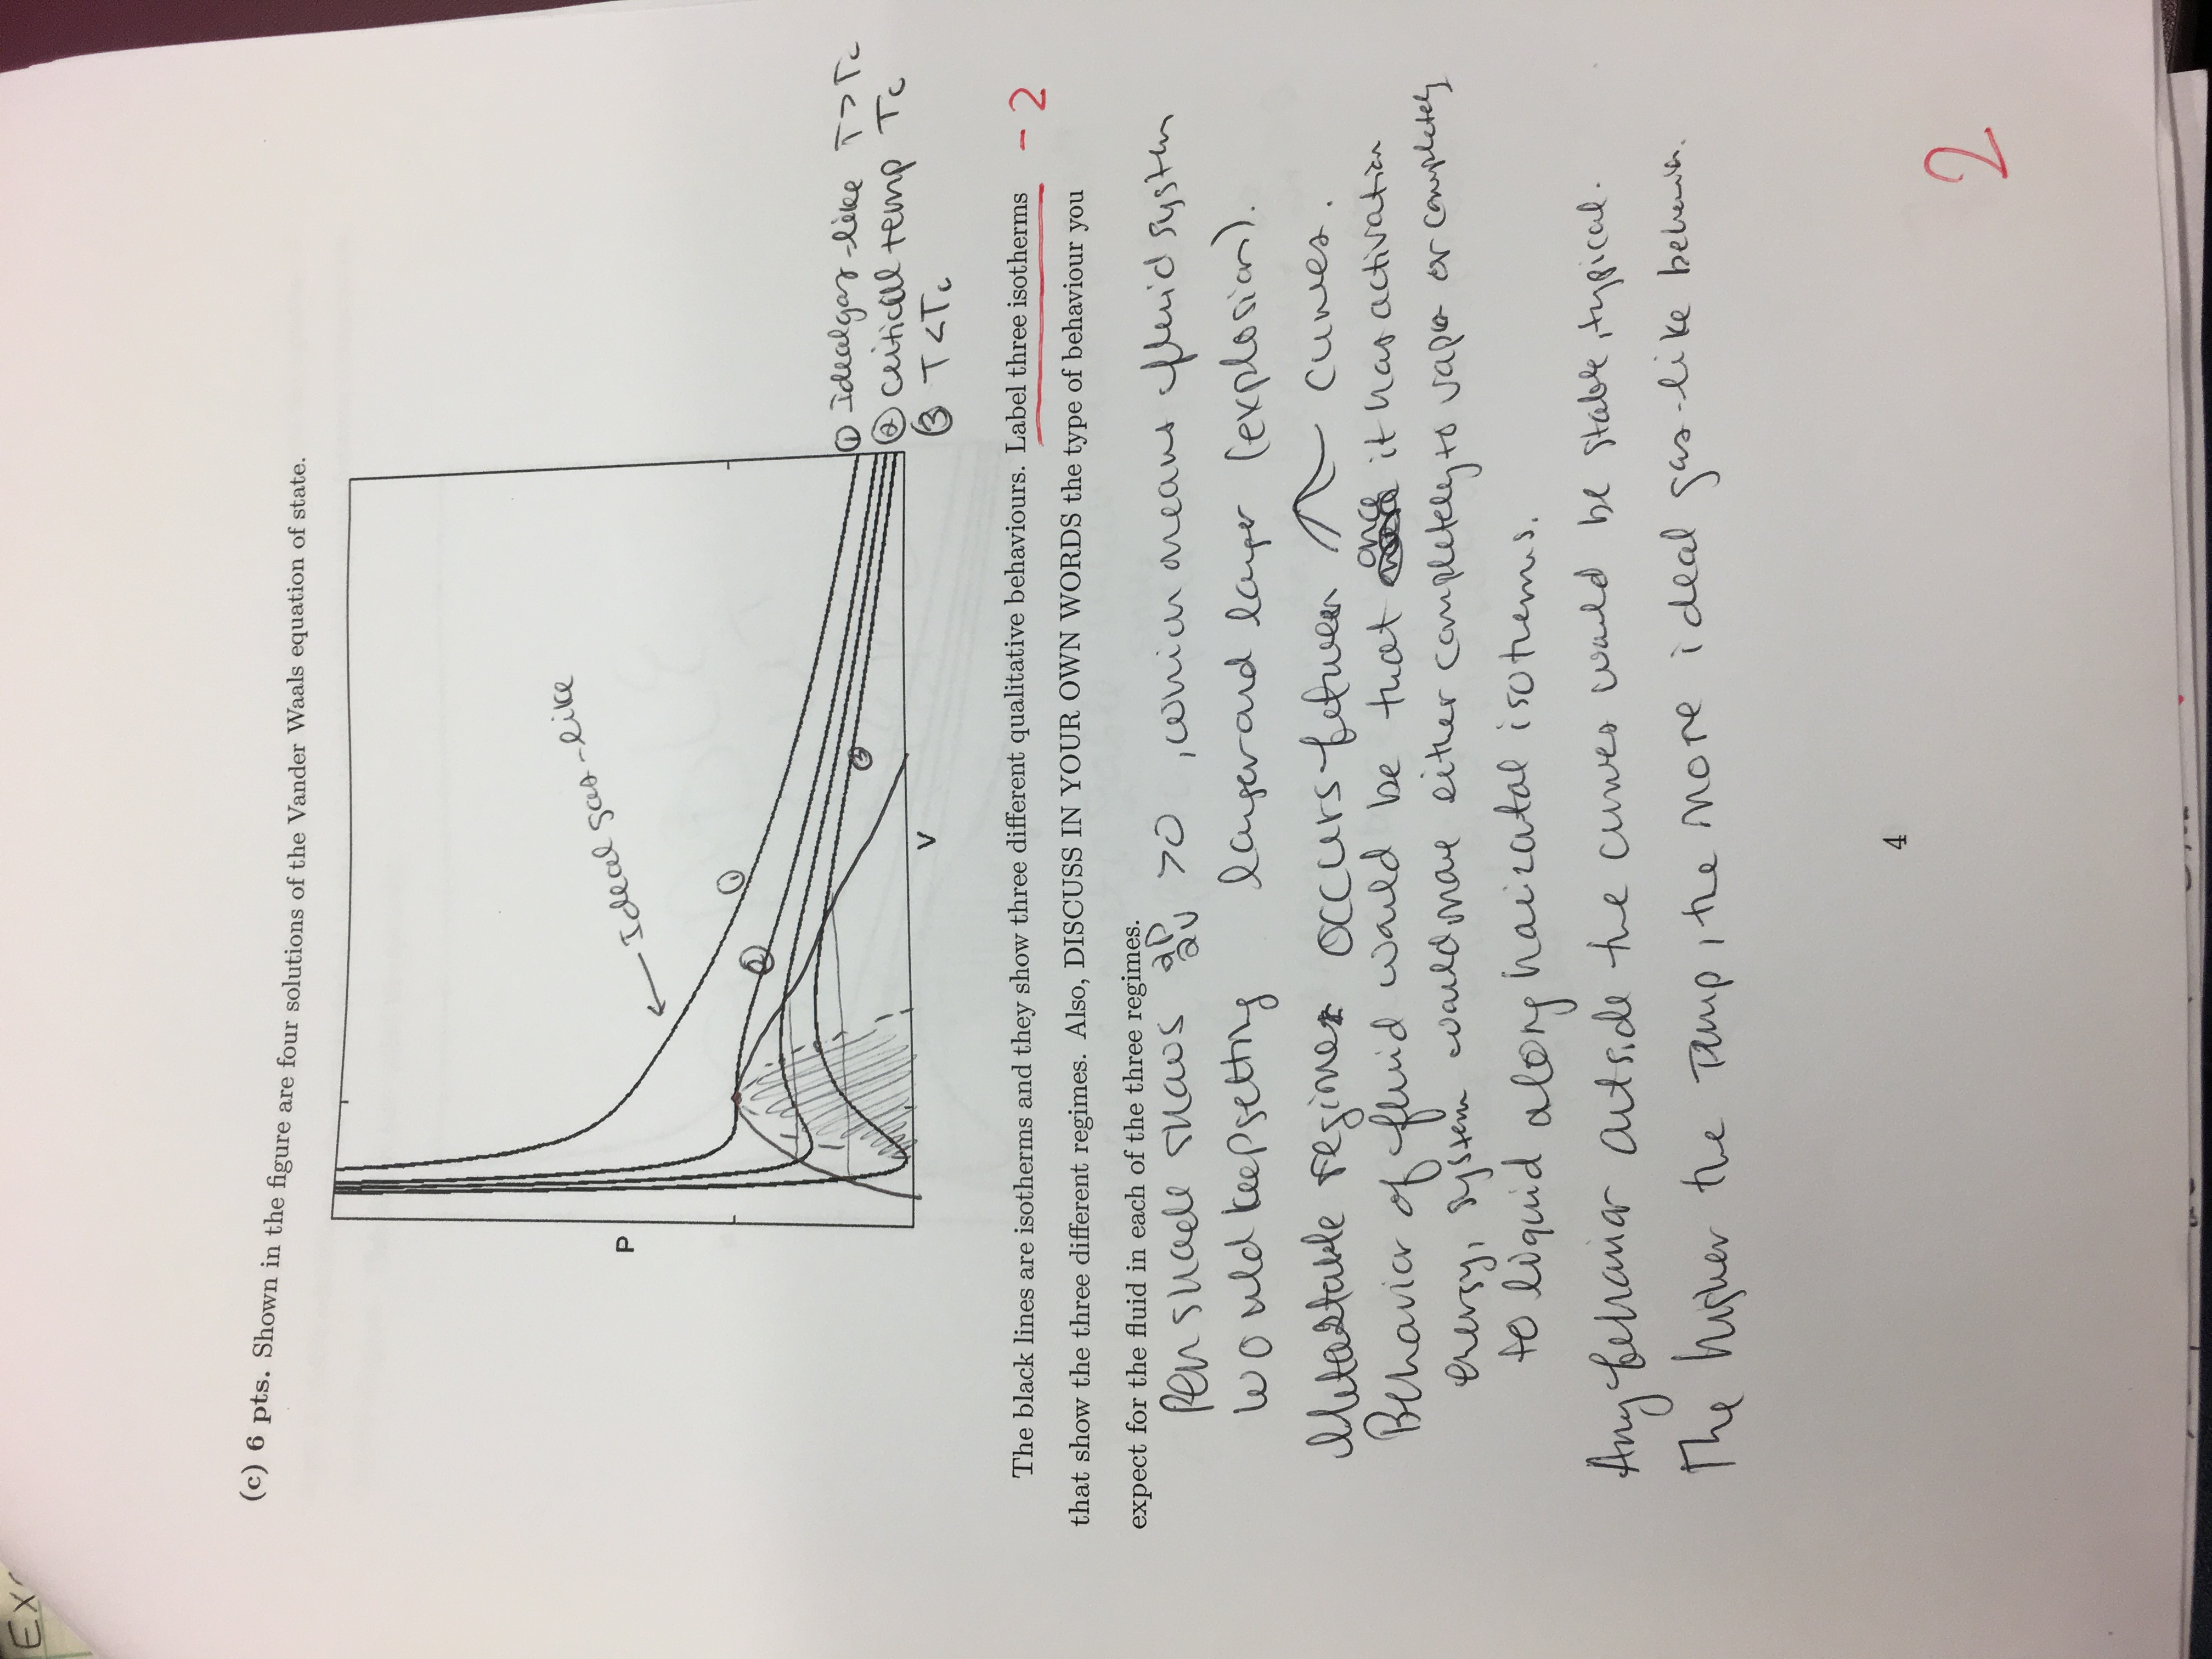 EX
(c) 6 pts. Shown in the figure are four solutions of the Vander Waals equation of state.
Ideal gas-like
P
①
②
③
① Ideal gas-like T > Tc
② critical temp Tc
③ T < Tc
V
The black lines are isotherms and they show three different qualitative behaviours. Label three isotherms - 2
that show the three different regimes. Also, DISCUSS IN YOUR OWN WORDS the type of behaviour you
expect for the fluid in each of the three regimes.
Pen shade shows ∂P/∂V > 0, which means fluid system
would keep getting larger and larger (explosion).
Metastable regimes occurs between curves.
Behavior of fluid would be that once it has activation
energy, system would move either completely to vapor or completely
to liquid along horizatal isotherms.
Any behavior outside the curves would be stable, typical.
The higher the Temp, the more ideal gas-like behavior.
4
2